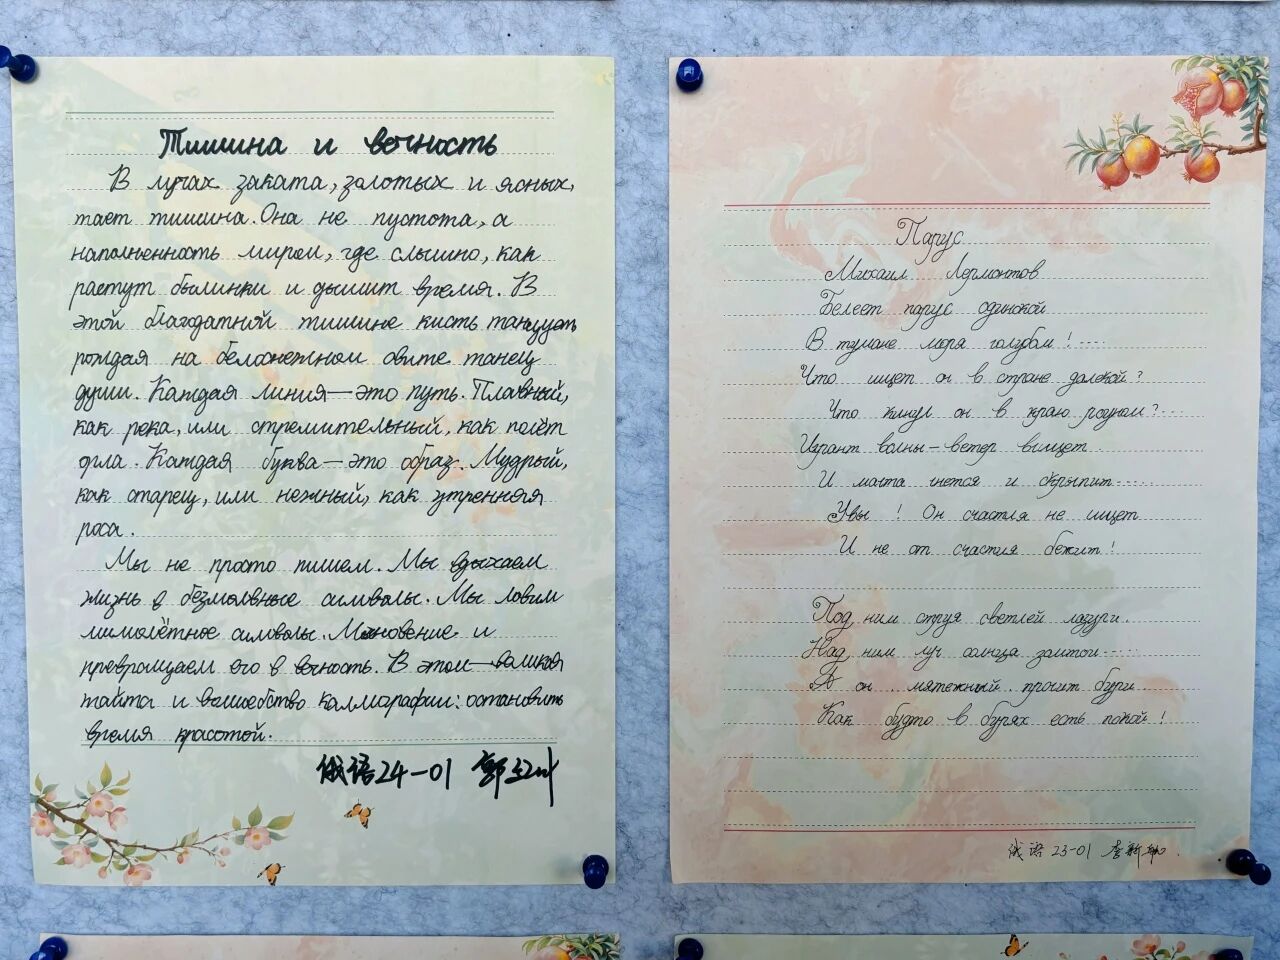 Тишина и вечность
В лучах заката, золотых и ясных,
тает тишина. Она не пустота, а
наполненность миром, где слышно, как
растут былинки и дышит время. В
этой благодатной тишине кисть танцует
рождая на белоснежном свите танец
души. Каждая линия—это путь. Плавный,
как река, или стремительный, как полёт
орла. Каждая буква—это образ. Мудрый,
как старец, или нежный, как утренняя
роса.
Мы не просто пишем. Мы вдыхаем
жизнь в безмолвные символы. Мы ловим
мимолётное символы. Мгновение и
превращаем его в вечность. В этом—великая
тайна и волшебство каллиграфии: остановить
время красотой.
俄语24-01
Парус
Михаил Лермонтов
Белеет парус одинокой
В тумане моря голубом!....
Что ищет он в стране далекой?
Что кинул он в краю родном?...
Играют волны—ветер свищет
И мачта гнется и скрыпит.....
Увы! Он счастия не ищет
И не от счастия бежит!
Под ним струя светлей лазури.
Над ним луч солнца золотой.....
А он, мятежный, просит бури
Как будто в бурях есть покой!
俄语 23-01 李新